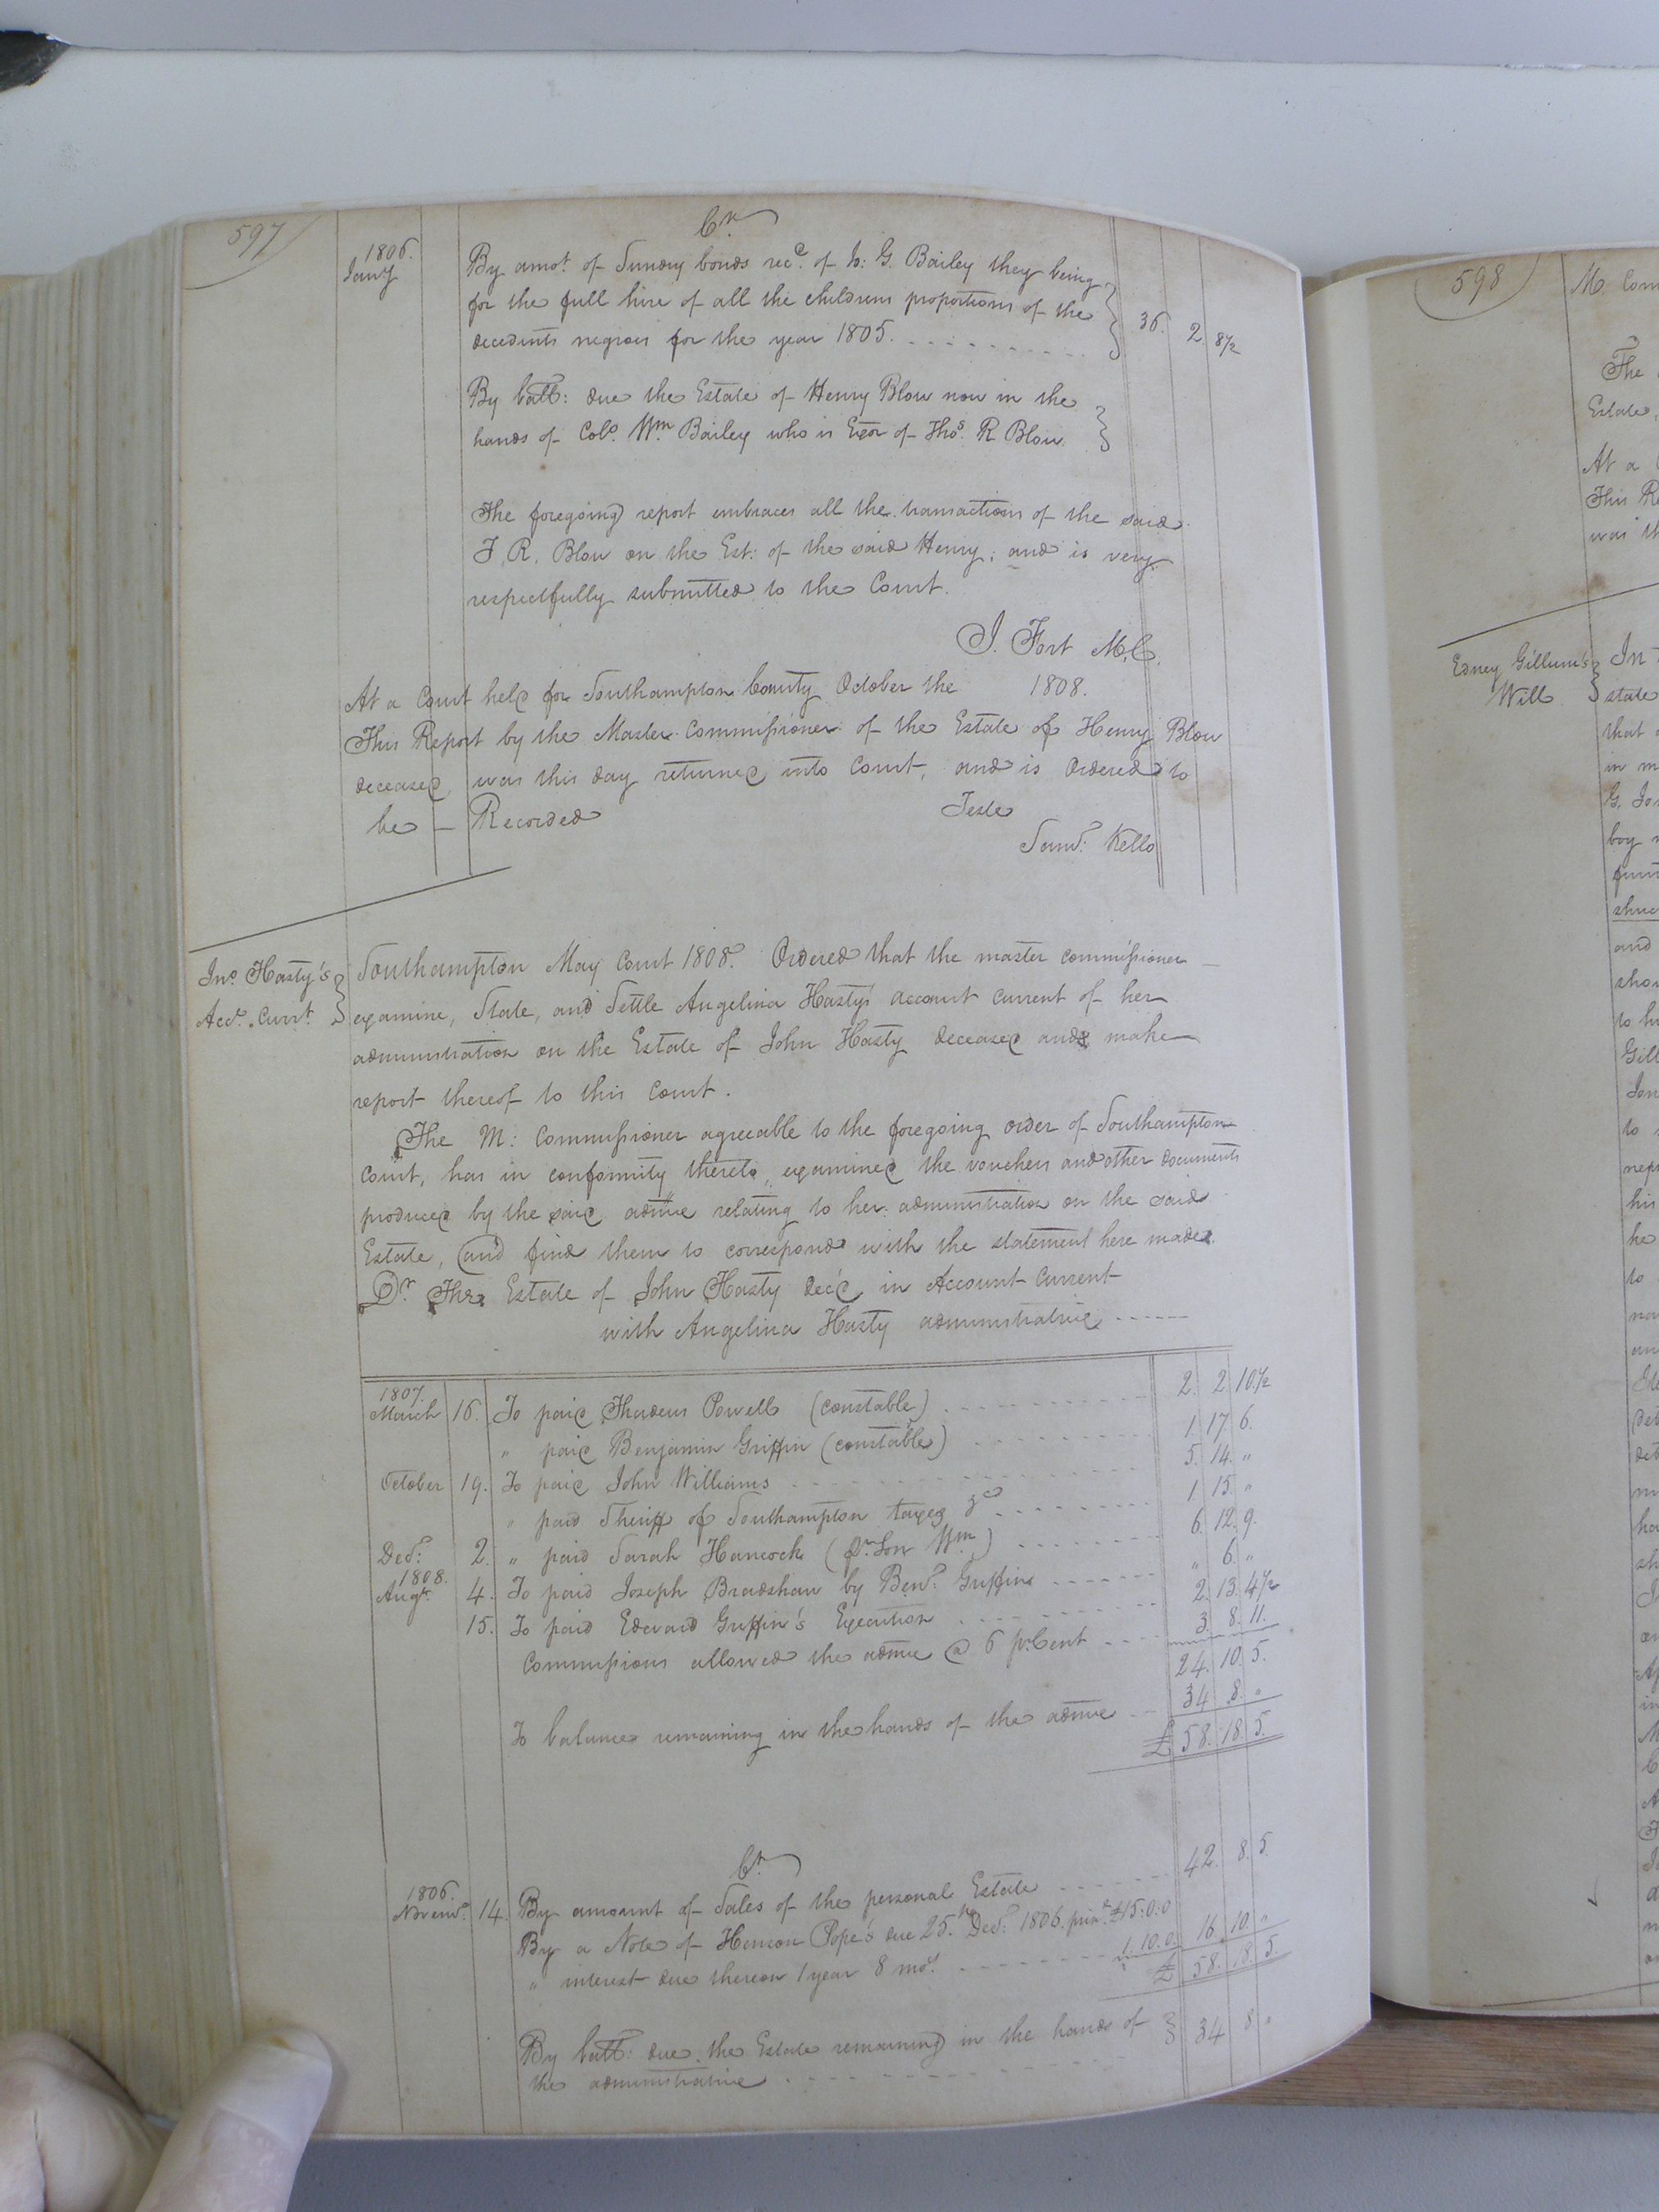 597
Cr.
1806.
Jany
By amot. of Sundry bonds recd. of Jo: G. Bailey they being
for the full hire of all the childrens proportions of the
decedents negroes for the year 1805. 36. 2. 8 1/2
By ball: due the Estate of Henry Blow now in the
hands of Colo. Wm. Bailey who is Exor of Thos. R Blow
The foregoing report embraces all the transactions of the said
T. R. Blow on the Est: of the said Henry, and is very
respectfully submitted to the Court.
J. Fort M.C.
At a Court held for Southampton County October the 1808.
This Report by the Master Commissioner of the Estate of Henry Blow
deceased was this day returned into Court, and is Ordered to
be — Recorded
Teste
Saml. Kello
Jno. Hasty's
Acct. Currt.
Southampton May Court 1808. Ordered that the master commissioner
examine, State, and Settle Angelina Hasty's account current of her
administration on the Estate of John Hasty deceased and make
report thereof to this Court.
The M: Commissioner agreeable to the foregoing order of Southampton
Court, has in conformity thereto, examined the vouchers and other documents
produced by the said admx relating to her administration on the said
Estate, and find them to correspond with the statement here made.
Dr. The Estate of John Hasty dec'd in Account Current
with Angelina Hasty administratrix
1807.
March 16. To paid Thadeus Powell (constable) 2. 2. 10 1/2
" paid Benjamin Griffin (constable) 1. 17. 6.
October 19. To paid John Williams 5. 14. "
" paid Sheriff of Southampton taxes &c 1. 15. "
Decr. 2. " paid Sarah Hancock (pr. Son Wm.) 6. 12. 9.
1808.
Augt. 4. To paid Joseph Bradshaw by Benj. Griffin " 6. "
15. To paid Edward Griffin's Execution 2. 13. 4 1/2
Commissions allowed the admx @ 6 pr. Cent 3. 8. 11.
24. 10. 5.
To balance remaining in the hands of the admx 34 8. "
£ 58. 18. 5.
Cr.
1806.
Novemr. 14. By amount of Sales of the personal Estate 42. 8. 5.
By a Note of Henson Pope's due 25th. Decr. 1806. prinl. £15:0:0
" interest due thereon 1 year 8 mos. 1. 10. 0. 16. 10. "
£ 58. 18. 5.
By ball: due the Estate remaining in the hands of
the administratrix 34 8 "
598
M. Com
The
Estate,
At a
This Re
was th
Edney Gillum's
Will
In
state
that
in m
G. Jo
boy
and
to
his
he
to